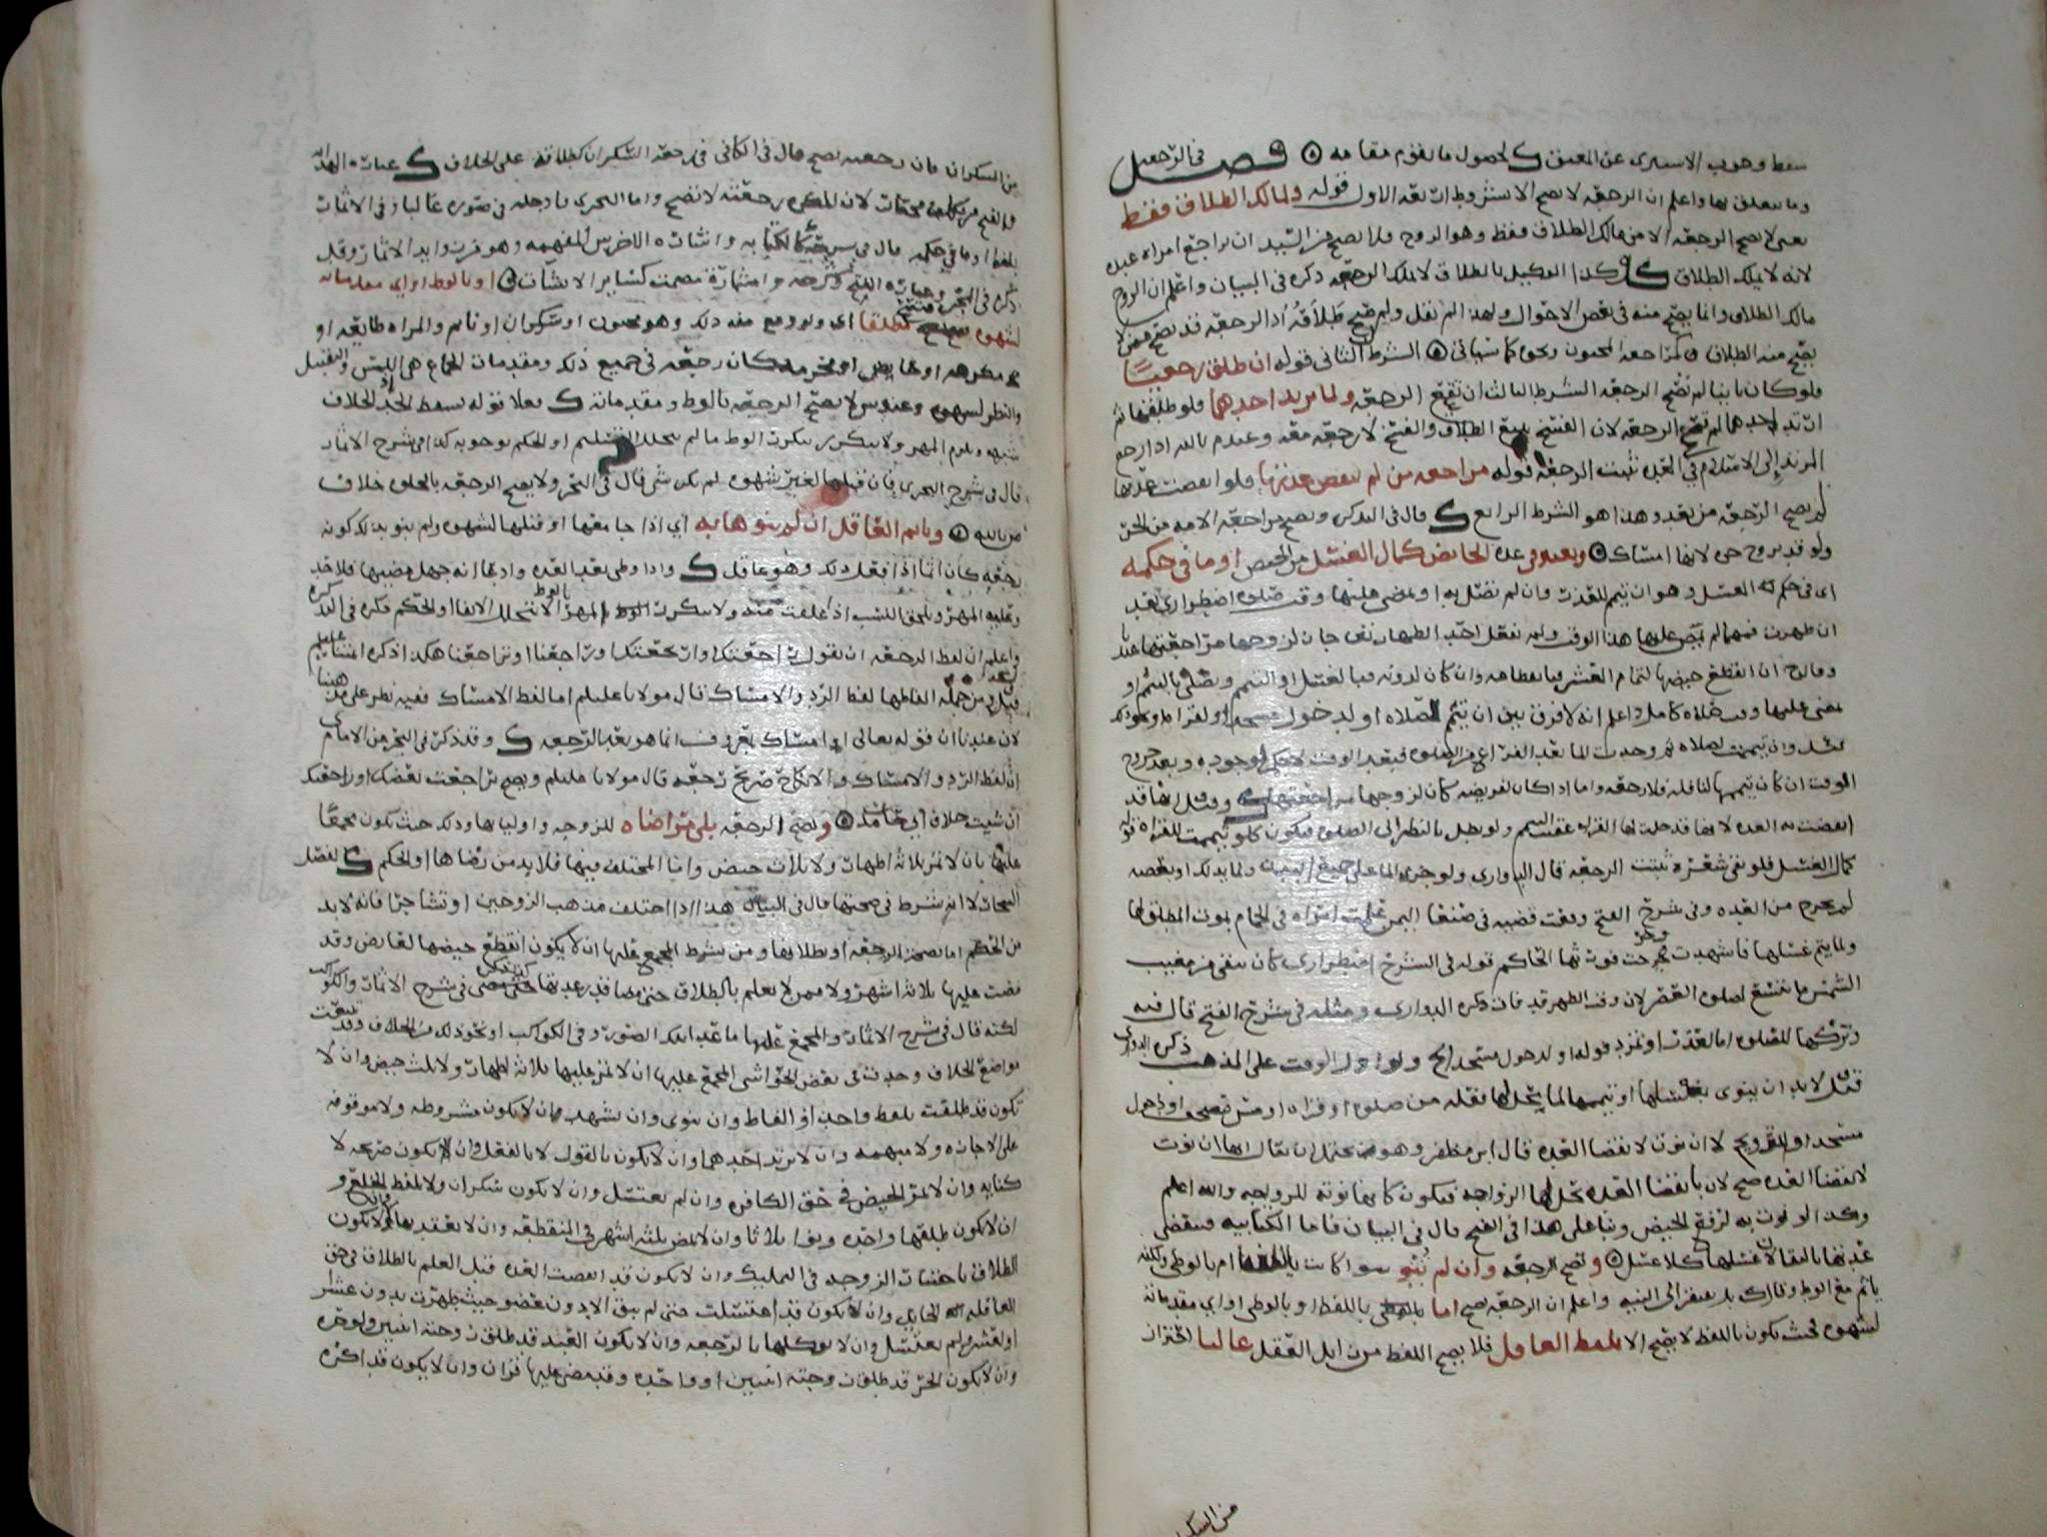 سقط وجوب الاستبرى عن المعتق لحصول ما يقوم مقامه فصل في الرجعه
وما يتعلق بها واعلم ان الرجعه لا تصح الا بشروط اربعه الاول قوله ولمالك الطلاق فقط
يعني لا تصح الرجعه الا من مالك الطلاق فقط وهو الزوج فلا تصح من السيد ان يراجع امراه عبده
لانه لا يملك الطلاق وكذا الوكيل بالطلاق لا يملك الرجعه ذكره في البيان واعلم ان الزوج
مالك الطلاق وانما يصح منه في بعض الاحوال ولهذا لم نقل ولمن صح طلاقه اذ الرجعه قد تصح ممن لا
يصح منه الطلاق كمراجعه المجنون ونحوه كما سياتي الشرط الثاني قوله ان طلق رجعيا
فلو كان باينا لم تصح الرجعه الشرط الثالث ان تقع الرجعه ولما يرتد احدهما فلو طلقها ثم
ارتد احدهما لم تصح الرجعه لان الفسخ يمنع الطلاق والفسخ لا رجعه معه وعند م بالله اذا رجع
المرتد الى الاسلام في العده ثبتت الرجعه قوله مراجعه من لم تنقض عدتها فلو انقضت عدتها
لم تصح الرجعه من بعد وهذا هو الشرط الرابع قال في التذكره وتصح مراجعه الامه من الحر
ولو قد تزوج حره لانها امساك ويعتبر في عده الحائض كمال الغسل من الحيض او ما في حكمه
اي في حكم الغسل وهو ان تيمم للعذر وان لم تصل به او يمضي عليها وقت صلوه اضطراري بعد
ان طهرت فمهما لم يمض عليها هذا الوقت ولم تفعل احد الطهارتين جاز لزوجها مراجعتها عندنا
وقال ح ان انقطع حيضها لتمام العشر فبانقطاعه وان كان لدونه فبالغسل او التيمم وتصلي بالتيمم او
يمضي عليها وقت صلاه كامل واعلم انه لا فرق بين ان تيمم للصلاه او لدخول مسجد او لقراه او نحو ذلك
الوقت ان كان تيممها لنافله فلا رجعه واما اذا كان لفريضه كان لزوجها مراجعتها وقيل انها قد
انقضت به العده لانها قد حلت لها القراه عقيب التيمم
كمال الغسل فلو بقي شعره ثبتت الرجعه قال الدواري ولو جرى الماء على جميع البدن ولما يدلك او بعضه
لم يخرج من العده وفي شرح الفتح وقعت قضيه في صنعا اليمن
ولما يتم غسلها فاشهدت فخرجت فورثها الحاكم قوله في الشرح اضطراري كان يبقى من مغيب
الشمس ما يتسع لصلوه العصر لان وقت الظهر قد فات ذكره الدواري ومثله في شرح الفتح قال فيه
وتركها للصلوه اما لعذر او تمرد قوله او لدخول مسجد الخ ولو اول الوقت على المذهب ذكره الدواري
قيل لا بد ان ينوى بغسلها او تيممها لما يحل لها فعله من صلوه او قراه او مس مصحف او دخول
مسجد او للتزويج لا ان نوت لانقضا العده قال ابن مظفر وهو محتمل ان يقال انها ان نوت
لانقضا العده صح لان بانقضا العده تحل لها الزواجه فيكون كانها نوته للزويجه والله اعلم
وكذا لو نوت به لرفع الحيض وبنا على هذا في الفتح قال في البيان فاما الكتابيه فتنقضي
عدتها بالنقا لان غسلها كلا غسل وتصح الرجعه وان لم ينو سوا كانت باللفظ ام بالوطي ولكنه
ياثم مع الوطي وقال ك بل يفتقر الى النيه واعلم ان الرجعه تصح اما باللفظ او بالوطي او اي مقدماته
لشهوه بحيث يكون باللفظ لا يصح الا بلفظ العاقل فلا يصح اللفظ من زايل العقل غالبا احتراز
من السكران
من السكران فان رجعته تصح قال في الكافي في رجعه السكران كطلاقه على الخلاف
لان المكره رجعته لا تصح واما البحري فادخله في صوره غالبا وفي الاثمار
بلفظ او ما في حكمه قال في شرحه كالكتابه واشاره الاخرس المفهمه وهو من زوايد الاثمار وقد
ذكره في البحر او بالوطء او اي مقدماته
لشهوه مطلقا اي ولو وقع منه ذلك وهو مجنون او سكران او نايم والمراه طايعه او
مكرهه او نحو ذلك كان رجعه في جميع ذلك ومقدمات الجماع هي اللمس والتقبيل
والنظر لشهوه وعند ش لا تصح الرجعه بالوطء ومقدماته فعلا قوله يسقط الحد للخلاف
شبهه ويلزم المهر ولا يتكرر بتكرر الوطء ما لم يتخلل التسليم او الحكم بوجوبه كذا في شرح الاثمار
قال في شرح البحري فان قبلها لغير شهوه لم يكن شي قال في البحر ولا تصح الرجعه بالخلوه خلاف
م بالله وياثم العاقل ان لم ينوها به اي اذا جامعها او قبلها لشهوه ولم ينو بذلك كونه
رجعه كان اثما اذا فعل ذلك وهو عاقل واذا وطي بعد العده وادعا انه جهل مضيها فلا حد
وعليه المهر ويلحق النسب اذا علقت منه ولا يتكرر المهر بالوطء الا بتخلل الايفا او الحكم ذكره في التذكره
واعلم ان لفظ الرجعه ان يقول راجعتك او ارتجعتك او راجعنا او تراجعنا هكذا ذكره
لفظ الرد والامساك قال مولانا عليلم اما لفظ الامساك ففيه نظر على مذهبنا
لان عندنا ان قوله تعالى او امساك بمعروف انما هو بعد الرجعه وقد ذكر في البحر عن الامام ى
ان لفظ الرد والامساك والانكاح صريح رجعه قال مولانا عليلم ويصح راجعت بعضك او راجعتك
ان شيت خلاف ابي حامد وتصح الرجعه بلى مراضاه للزوجه واوليايها وذلك حيث تكون مجمعا
عليها بان لا تمر ثلاثه اطهار ولا ثلاث حيض واما المختلف فيها فلا بد من رضاها او الحكم لفصل
الشجار لا انه شرط في صحتها قال في البيان هذا اذا اختلف مذهب الزوجين او تشاجرا فانه لا بد
من الحكم اما بصحه الرجعه او بطلانها ومن شرط المجمع عليها ان لا يكون انقطع حيضها لعارض وقد
مضت عليها ثلاثه اشهر ولا ممن لا تعلم بالطلاق حتى مضا قدر عدتها كذلك في شرح الاثمار والكواكب
لكنه قال في شرح الاثمار والمجمع عليها ما عدا هذه الصور وفي الكواكب او نحو ذلك من الخلاف وقد تتبعت
مواضع الخلاف وجدت في بعض الحواشي المجمع عليها ان لا تمر عليها ثلاثه اطهار ولا ثلث حيض وان لا
تكون قد طلقت بلفظ واحد او الفاظ وان ينوى وان يشهد وان لا يكون مشروطه ولا موقوفه
على الاجازه ولا مبهمه وان لا يرتد احدهما وان لا يكون بالقول لا بالفعل وان يكون صريحه لا
كنايه وان لا تمر الحيض في حق الكافره وان لم تغتسل وان لا يكون سكران ولا بلفظ الخلع و
ان لا يكون طلقها واحده ونوا ثلاثا وان لا تمض ثلثه اشهر في المنقطعه وان لا يعتد بها وان لا يكون
الطلاق باختيار الزوجه في التمليك وان لا يكون قد انقضت العده قبل العلم بالطلاق في حق
العاقله الحايل وان لا يكون قد اغتسلت حتى لم يبق الا دون عضو حيث طهرت بدون عشر
او لعشر ولم تغتسل وان لا يوكلها بالرجعه وان لا يكون العبد قد طلق زوجته اثنتين ولو حره
وان لا يكون الحر قد طلق زوجته اثنتين او واحده وقد مضى عليها قران وان لا يكون قد اكره